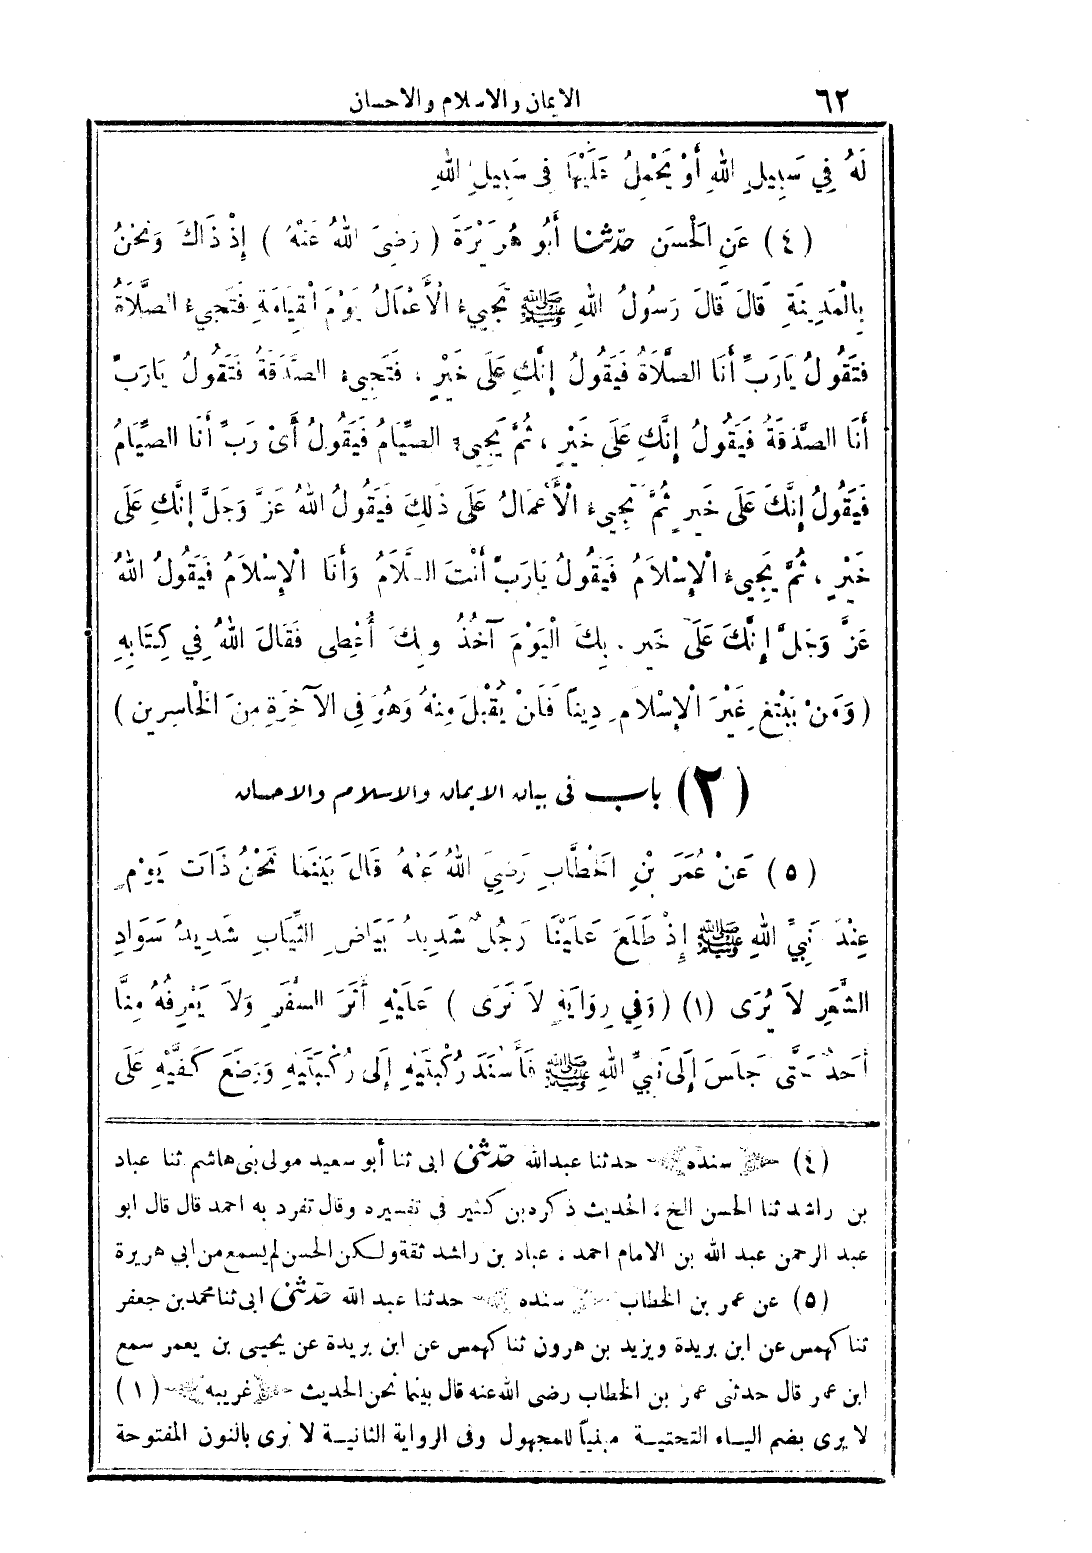 ٦٢ الايمان والاسلام والاحسان
لَهُ فِي سَبِيلِ اللهِ أَوْ يَحْمِلُ عَلَيْهَا فِى سَبِيلِ اللهِ
(٤) عَنِ الْحَسَنِ حَدَّثَنَا أَبُو هُرَيْرَةَ (رَضِىَ اللهُ عَنْهُ) إِذْ ذَاكَ وَنَحْنُ
بِالْمَدِينَةِ قَالَ قَالَ رَسُولُ اللهِ ﷺ تَجِيءُ الْأَعْمَالُ يَوْمَ الْقِيَامَةِ فَتَجِيءُ الصَّلَاةُ
فَتَقُولُ يَارَبِّ أَنَا الصَّلَاةُ فَيَقُولُ إِنَّكِ عَلَى خَيْرٍ ، فَتَجِيءُ الصَّدَقَةُ فَتَقُولُ يَارَبِّ
أَنَا الصَّدَقَةُ فَيَقُولُ إِنَّكِ عَلَى خَيْرٍ ، ثُمَّ يَجِيءُ الصِّيَامُ فَيَقُولُ أَىْ رَبِّ أَنَا الصِّيَامُ
فَيَقُولُ إِنَّكَ عَلَى خَيرٍ ثُمَّ تَجِيءُ الْأَعْمَالُ عَلَى ذَلِكَ فَيَقُولُ اللهُ عَزَّ وَجَلَّ إِنَّكِ عَلَى
خَيْرٍ ، ثُمَّ يَجِيءُ الْإِسْلَامُ فَيَقُولُ يَارَبِّ أَنْتَ السَّلَامُ وَأَنَا الْإِسْلَامُ فَيَقُولُ اللهُ
عَزَّ وَجَلَّ إِنَّكَ عَلَى خَيرٍ . بِكَ الْيَوْمَ آخُذُ وَبِكَ أُعْطِى فَقَالَ اللهُ فِي كِتَابِهِ
(وَمَنْ يَبْتَغِ غَيْرَ الْإِسْلَامِ دِيناً فَلَنْ يُقْبَلَ مِنْهُ وَهُوَ فِى الآخِرَةِ مِنَ الْخَاسِرِين)
(٢) باب فى بيان الايمان والاسلام والاحسان
(٥) عَنْ عُمَرَ بْنِ الْخَطَّابِ رَضِيَ اللهُ عَنْهُ قَالَ بَيْنَمَا نَحْنُ ذَاتَ يَوْمٍ
عِنْدَ نَبِيِّ اللهِ ﷺ إِذْ طَلَعَ عَلَيْنَا رَجُلٌ شَدِيدُ بَيَاضِ الثِّيَابِ شَدِيدُ سَوَادِ
الشَّعَرِ لاَ يُرَى (١) (وَفِي رِوَايَةٍ لاَ نَرَى) عَلَيْهِ أَثَرَ السَّفَرِ وَلاَ يَعْرِفُهُ مِنَّا
أَحَدٌ حَتَّى جَلَسَ إِلَى نَبِيِّ اللهِ ﷺ فَأَسْنَدَ رُكْبَتَيْهِ إِلَى رُكْبَتَيْهِ وَوَضَعَ كَفَّيْهِ عَلَى
(٤) سنده حدثنا عبدالله حدّثنى ابى ثنا أبو سعيد مولى بنى هاشم ثنا عباد
بن راشد ثنا الحسن الخ ، الحديث ذكره بن كثير فى تفسيره وقال تفرد به احمد قال قال ابو
عبد الرحمن عبد الله بن الامام احمد ، عباد بن راشد ثقة ولكن الحسن لم يسمع من ابى هريرة
(٥) عن عمر بن الخطاب سنده حدثنا عبد الله حدّثنى ابى ثنا محمد بن جعفر
ثنا كهمس عن ابن بريدة ويزيد بن هرون ثنا كهمس عن ابن بريدة عن يحيى بن يعمر سمع
ابن عمر قال حدثنى عمر بن الخطاب رضى الله عنه قال بينما نحن الحديث غريبه (١)
لا يرى بضم اليـاء التحتيـة مبنياً للمجهول وفى الرواية الثانيـة لا نرى بالنون المفتوحة